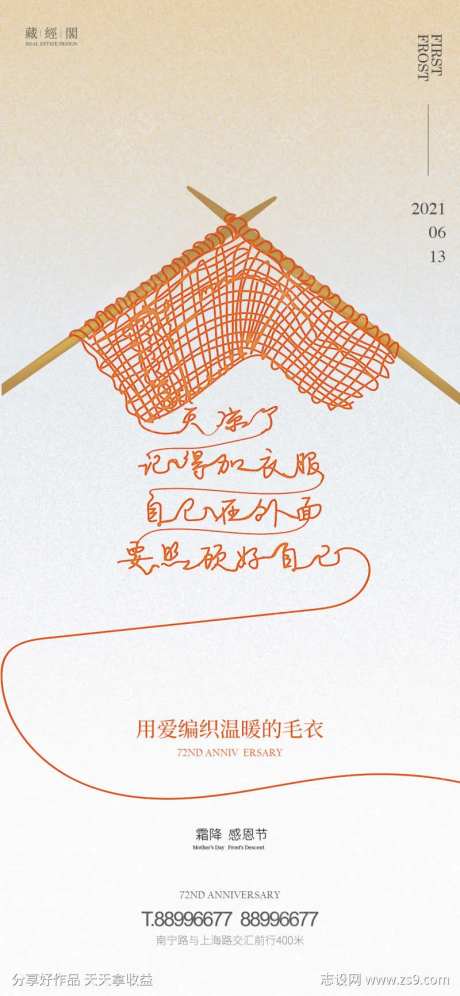 藏經閣
REAL ESTATE DESIGN
FIRST
FROST
2021
06
13
天凉了
记得加衣服
自己在外面
要照顾好自己
用爱编织温暖的毛衣
72ND ANNIV ERSARY
霜降 感恩节
Mother's Day Frost's Descent
72ND ANNIVERSARY
T.88996677 88996677
南宁路与上海路交汇前行400米
分享好作品 天天拿收益
志设网 www.zs9.com